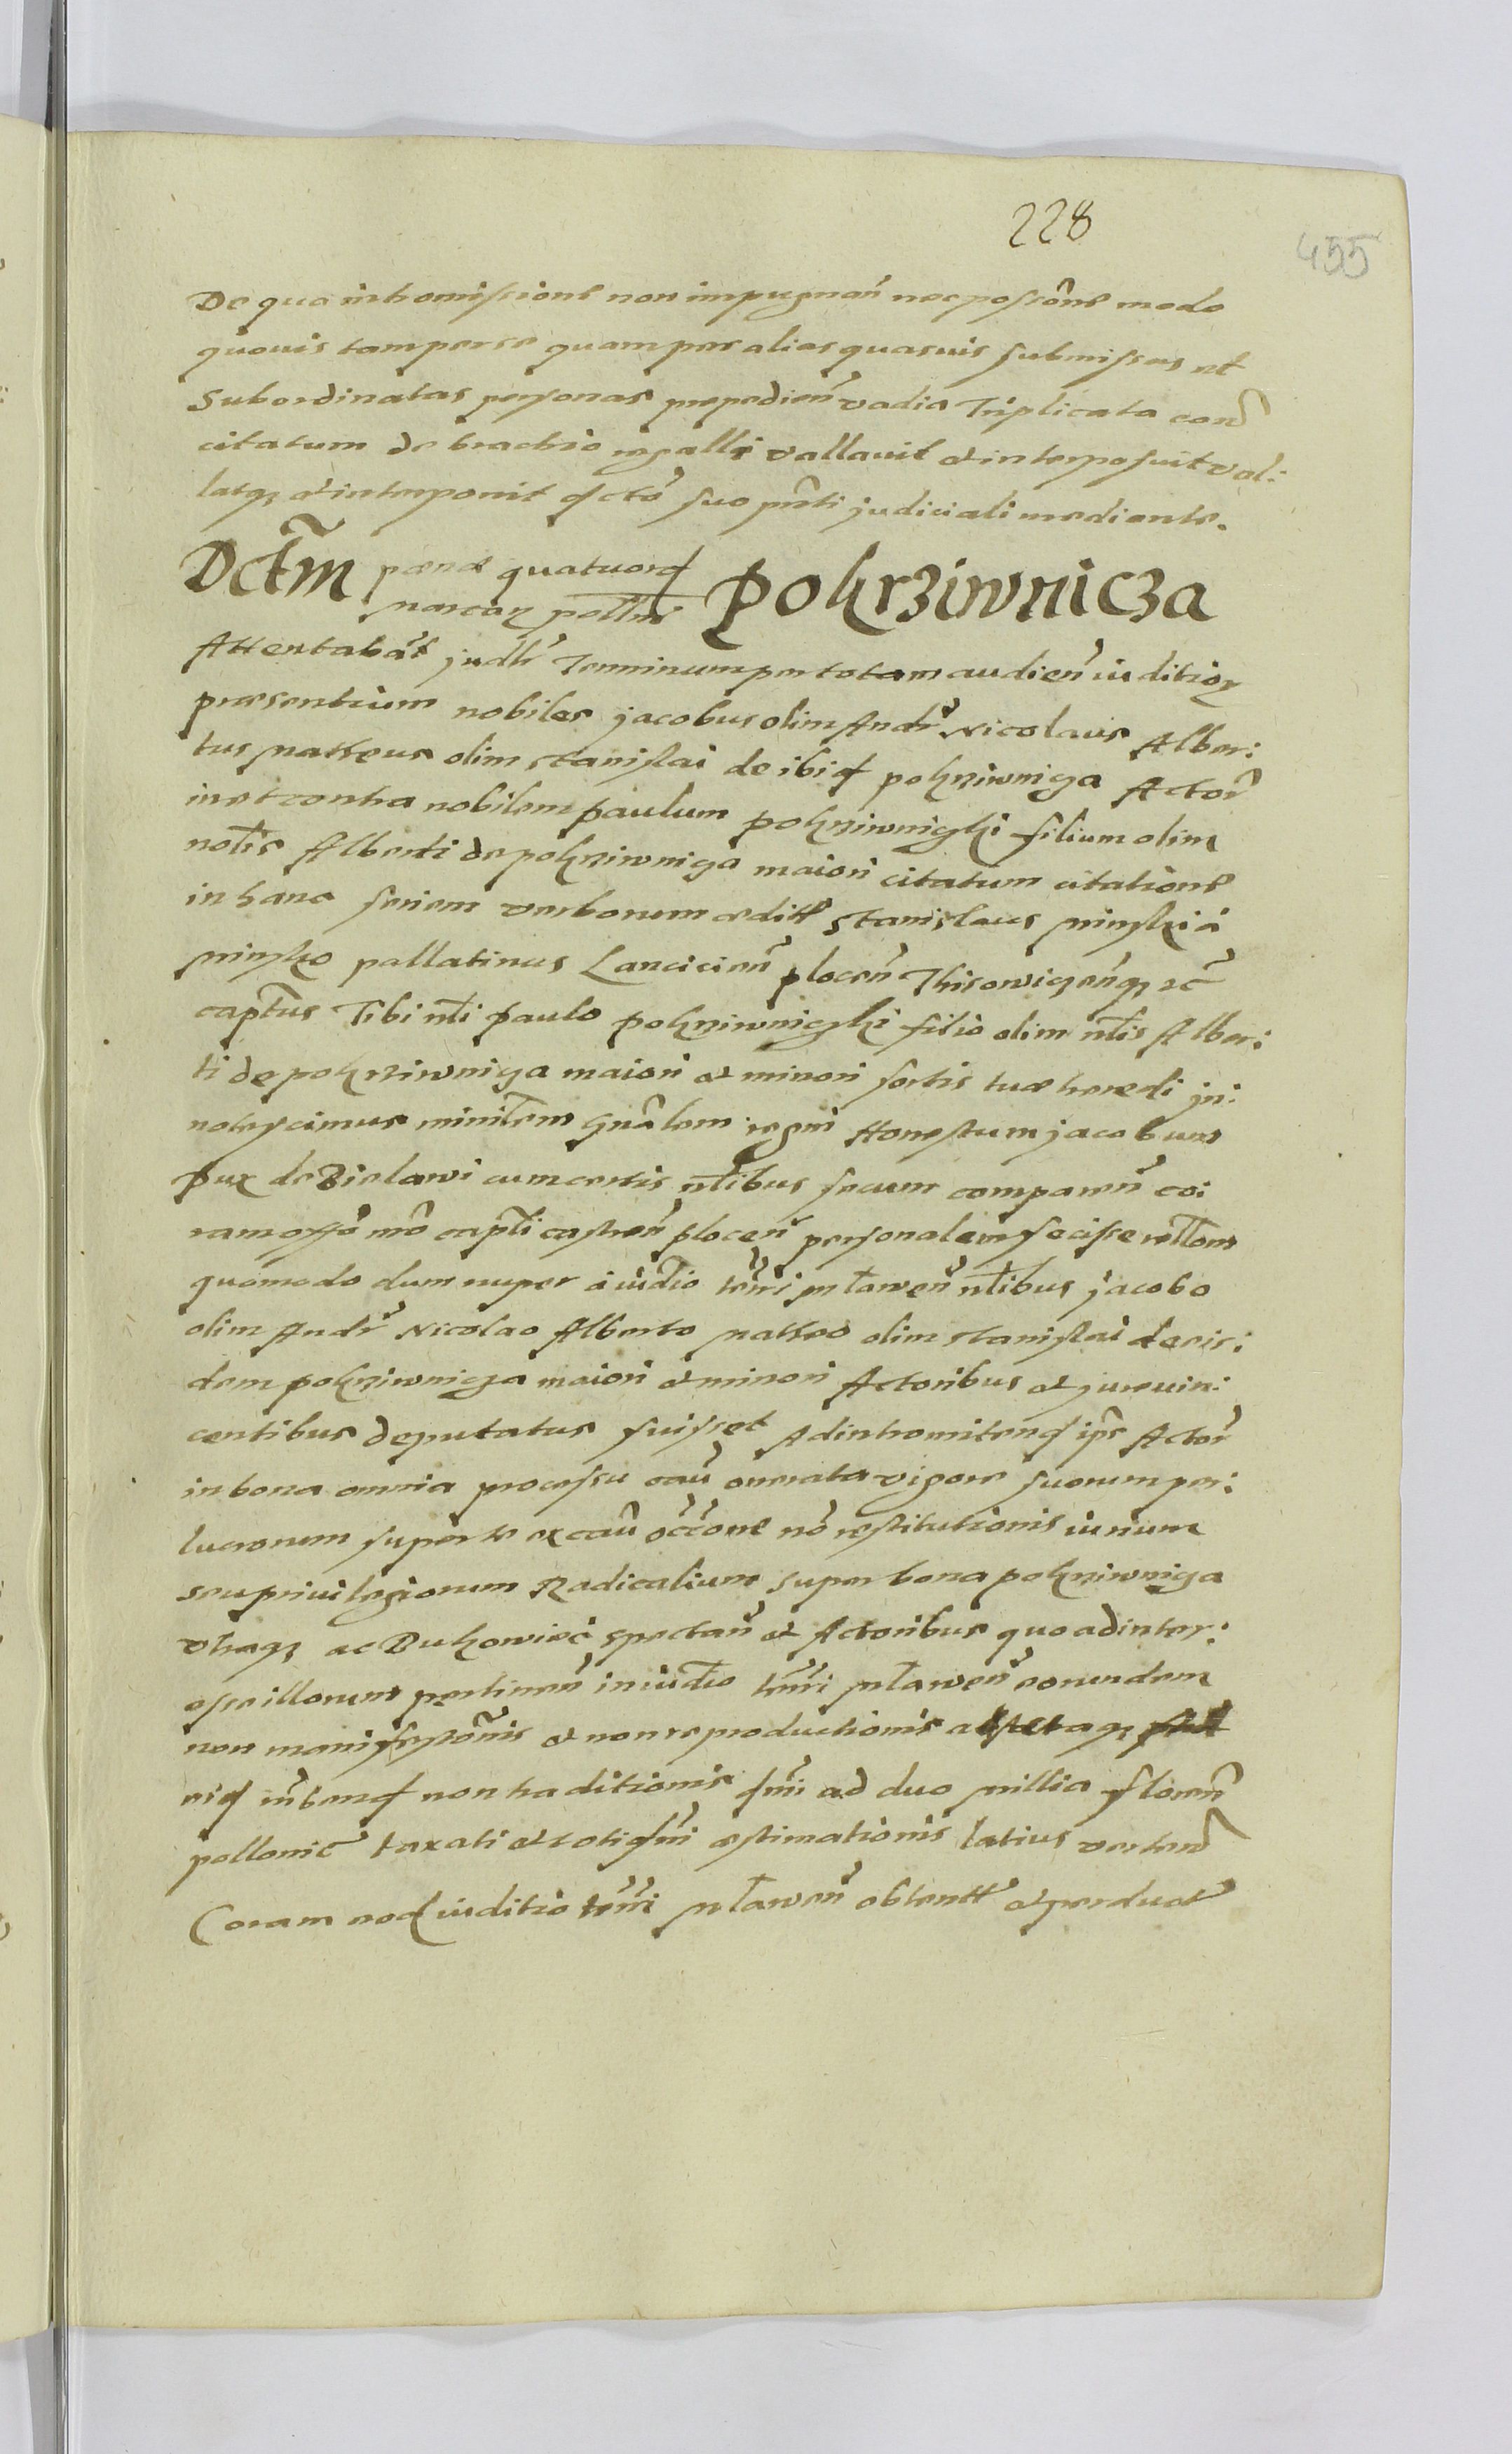 228
455
De qua intromissione non impugnan̄ nec possōne modo
quovis tam per se quam per alias quasvis submissas et
Subordinatas personas prepedien̄ vadia Triplicata con̄
citatum de brachio regalli vallavit et interposuit val:
latq₃ et interponit dcto suo pn̄ti judiciali mediante.
Dct̄m pœnæ quatuord
marcaꝝ pollns Pokrziwnicza
Attentabāt judlr̄ Terminum per totam audien̄ iuditioꝝ
præsentium nobiles jacobus olim Andr̄ Nicolaus Alber:
tus Matheus olim Stanislai de ibid pokrziwniga Actor̄
in et contra nobilem paulum pokrziwniczki filium olim
nōlis Alberti de pokrziwniga maiori citatum citatione
in hanc seriem verborum æditt Stanislaus Minski á
Minsko pallatinus Lancicien̄ plocen̄ Thisowiczen̄q₃ ec̄
capt̄us Tibi nl̄i paulo pokrziwniczki filio olim nl̄is Alber:
ti de pokrziwniga maiori et minori sortis tuæ heredi jn:
notescimus ministem gnālem regni Honestum jacobum
Pux de Bielawi cum certis nl̄ibus secum comparen̄ co:
ram offō mō capt̄li castren̄ plocen̄ personalem fecisse rellōm
quomodo dum nuper á iūdio terr̄i mlawen̄ nl̄ibus jacobo
olim Andr̄ Nicolao Alberto Matheo olim Stanislai de eis:
dem pokrziwniga maiori et minori Actoribus et jurevin:
centibus deputatus fuisset Ad intromitend ips̄ Actor̄
in bona omnia processu cau̅ onerata vigore suorum per:
lucrorum super te ex cau̅ occ̄one nō restitutionis iurium
seu privilegiorum Radicalium super bona pokrziwniga
utraq₃ ac Bukowiec spectan̄ et Actoribus quo ad inter:
esse illorum pertinen̄ in iūdio terr̄i mlawen̄ eorundem
non manifestōnis et non reproductionis
non traditionis ad duo millia floren̄
pollonic̄ taxati et totidm̄ æstimationis latius verten̄
Coram eod iuditio terr̄i mlawen̄ obtentt et perduct